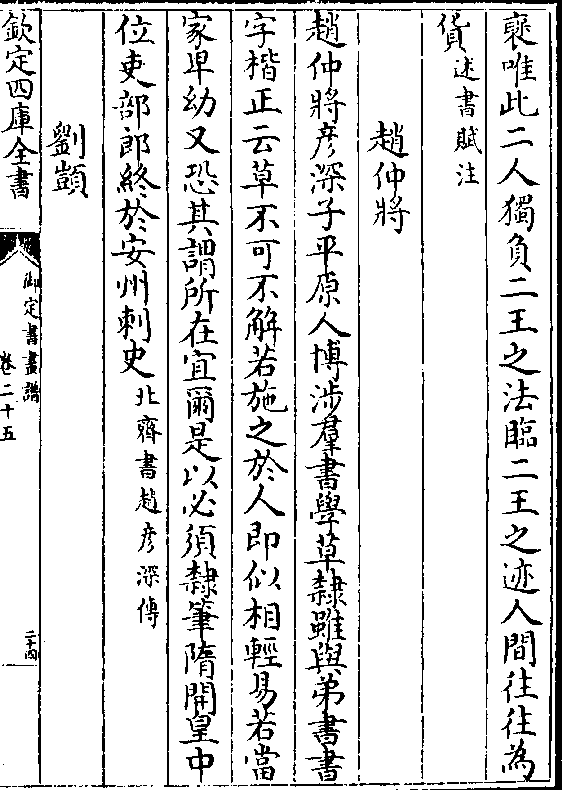 褎唯此二人獨負二王之法臨二王之迹人間往往為
貨述書賦注
趙仲將
趙仲將彦深子平原人博涉羣書學草隸雖與弟書書
字楷正云草不可不解若施之於人即似相輕易若當
家卑幼又恐其謂所在宜爾是以必須隸筆隋開皇中
位吏部郎終於安州刺史北齊書趙彦深傳
劉顗
欽定四庫全書
御定書畫譜
卷二十五
二十四